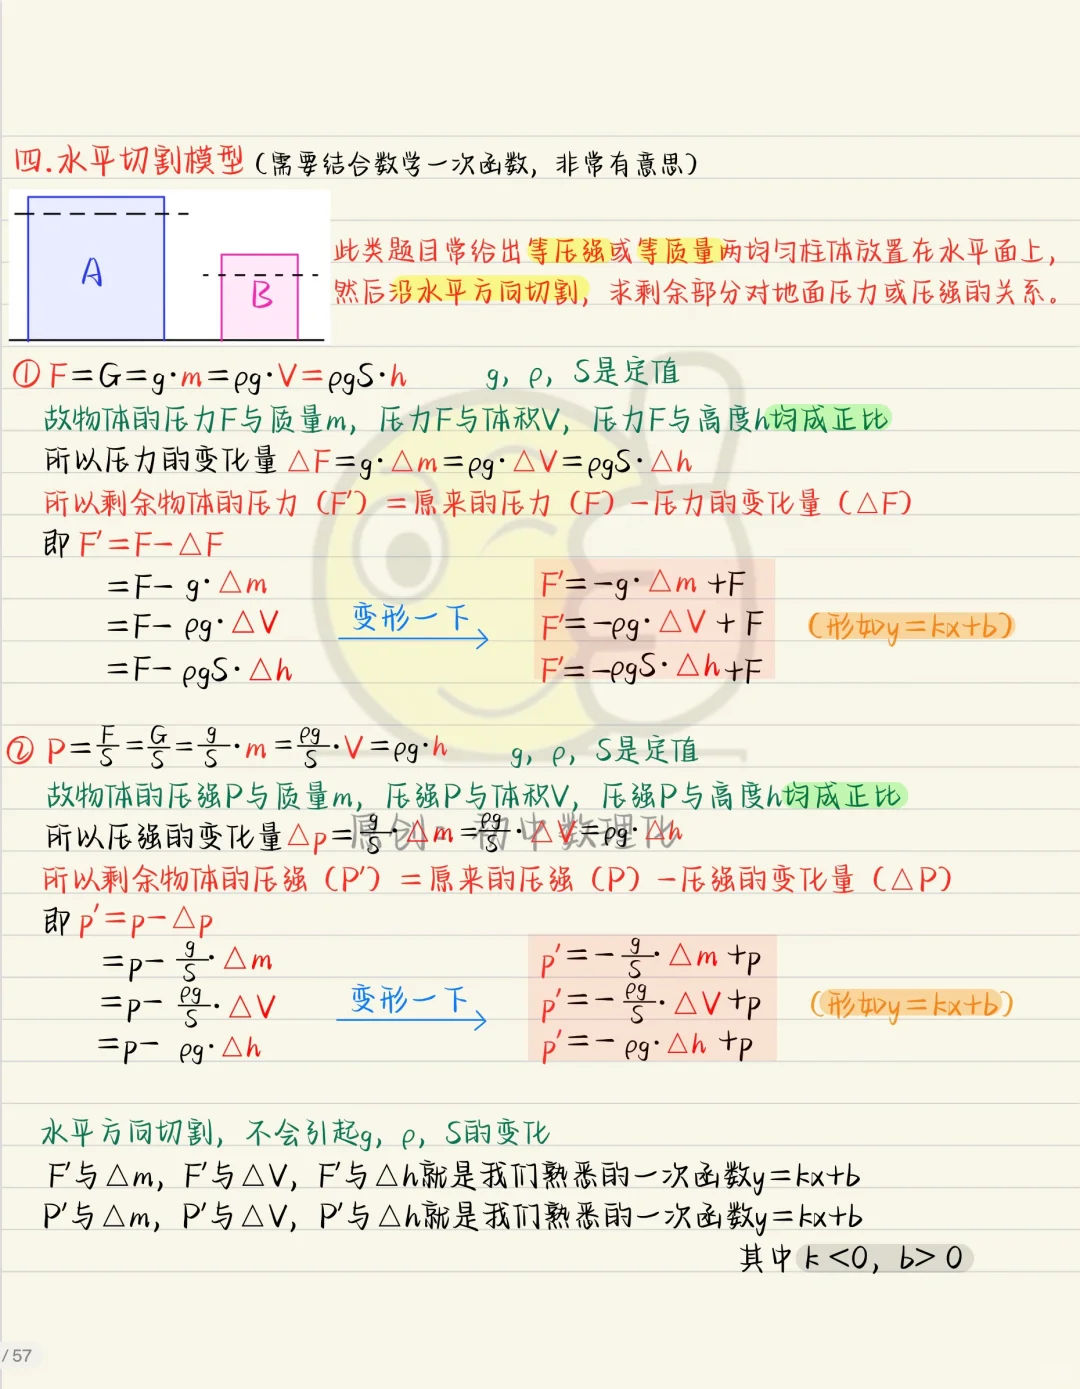 四.水平切割模型（需要结合数学一次函数，非常有意思）
A
B
此类题目常给出等压强或等质量两均匀柱体放置在水平面上，
然后沿水平方向切割，求剩余部分对地面压力或压强的关系。
① F=G=g·m=ρg·V=ρgS·h g，ρ，S是定值
故物体的压力F与质量m，压力F与体积V，压力F与高度h均成正比
所以压力的变化量△F=g·△m=ρg·△V=ρgS·△h
所以剩余物体的压力（F'）=原来的压力（F）-压力的变化量（△F）
即 F'=F-△F
=F- g·△m F'=-g·△m+F
=F- ρg·△V 变形一下 F'=-ρg·△V+F （形如y=kx+b）
=F- ρgS·△h F'=-ρgS·△h+F
② P=F/S=G/S=g/S·m=ρg/S·V=ρg·h g，ρ，S是定值
故物体的压强P与质量m，压强P与体积V，压强P与高度h均成正比
所以压强的变化量△p=g/S·△m=ρg/S·△V=ρg·△h
原创 初中数理化
所以剩余物体的压强（P'）=原来的压强（P）-压强的变化量（△P）
即 p'=p-△p
=p- g/S·△m p'=-g/S·△m+p
=p- ρg/S·△V 变形一下 p'=-ρg/S·△V+p （形如y=kx+b）
=p- ρg·△h p'=-ρg·△h+p
水平方向切割，不会引起g，ρ，S的变化
F'与△m，F'与△V，F'与△h就是我们熟悉的一次函数y=kx+b
P'与△m，P'与△V，P'与△h就是我们熟悉的一次函数y=kx+b
其中k<0，b>0
/ 57